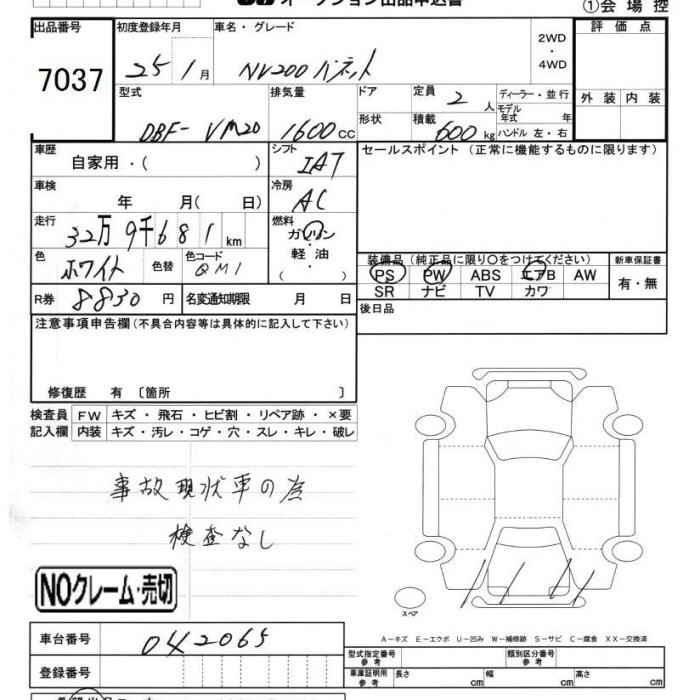 オークション出品申込書
①会場控
出品番号 7037
初度登録年月 25年 1月
車名・グレード NV200 バネット
2WD・4WD
評価点
外装 内装
型式 DBF- VM20
排気量 1600CC
ドア
形状
定員 2人
積載 600kg
ディーラー・並行
モデル年式 年
ハンドル 左・右
車歴 自家用・( )
シフト IAT
セールスポイント(正常に機能するものに限ります)
車検 年 月( 日)
冷房 AC
走行 32万9千681km
燃料 ガソリン・軽油・( )
色 ホワイト 色替
色コード QM1
装備品(純正品に限り○をつけてください)
新車保証書
PS PW ABS エアB AW
SR ナビ TV カワ
有・無
R券 8830円
名変通知期限 月 日
後日品
注意事項申告欄(不具合内容等は具体的に記入して下さい)
修復歴 有〔箇所 〕
検査員 FW キズ・飛石・ヒビ割・リペア跡・×要
記入欄 内装 キズ・汚レ・コゲ・穴・スレ・キレ・破レ
事故現状車の為
検査なし
NOクレーム・売切
スペア
A−キズ E−エクボ U−凹み W−補修跡 S−サビ C−腐食 XX−交換済
車台番号 042065
型式指定番号 参考
類別区分番号 参考
登録番号
車庫証明用 参考
長さ cm 幅 cm 高さ cm